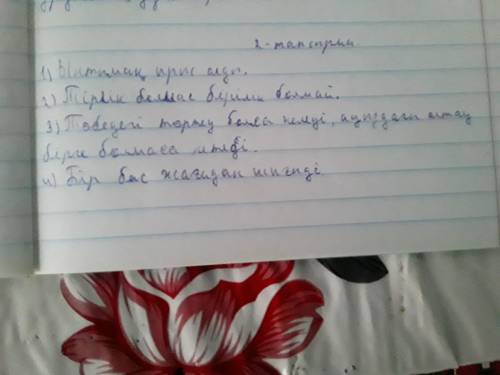 2-тапсырма
1) Ынтымақ ырыс алды.
2) Тірлік болмас бірлік болмай.
3) Төбедегі төртеу болса келеді, ауыздағы алтау
бірік болмаса кетеді.
4) Бір бас жағадан шығады